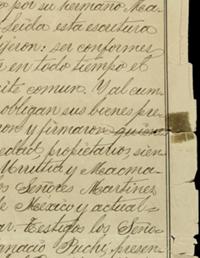 por su hermano
leida esta escritura
ijeron: ser conformes
en todo tiempo el
comun. Y al cum
obligan sus bienes pre
y firmaron
edad, propietarios, sien
Urrutia y
los Señores Martinez
de Mexico y actual-
ar. Testigos los Seño-
gnacio Puchi, presen-